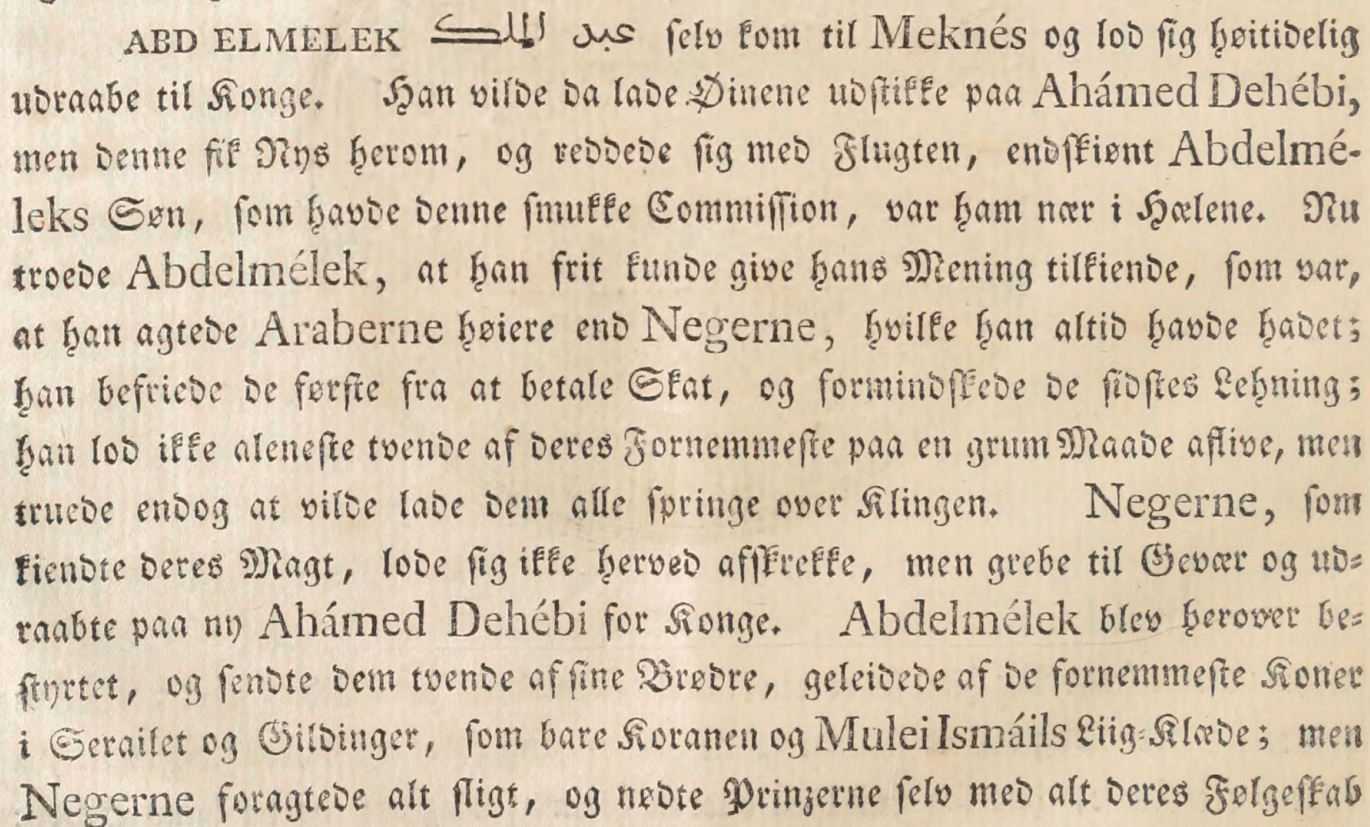 ABD ELMELEK عبد الملك selv kom til Meknés og lod sig høitidelig
udraabe til Konge. Han vilde da lade Øinene udstikke paa Ahámed Dehébi,
men denne fik Nys herom, og reddede sig med Flugten, endskiønt Abdelmé-
leks Søn, som havde denne smukke Commission, var ham nær i Hælene. Nu
troede Abdelmélek, at han frit kunde give hans Mening tilkiende, som var,
at han agtede Araberne høiere end Negerne, hvilke han altid havde hadet;
han befriede de første fra at betale Skat, og formindskede de sidstes Lehning;
han lod ikke aleneste tvende af deres Fornemmeste paa en grum Maade aflive, men
truede endog at vilde lade dem alle springe over Klingen. Negerne, som
kiendte deres Magt, lode sig ikke herved afskrekke, men grebe til Gevær og ud-
raabte paa ny Ahámed Dehébi for Konge. Abdelmélek blev herover be-
styrtet, og sendte dem tvende af sine Brødre, geleidede af de fornemmeste Koner
i Serailet og Gildinger, som bare Koranen og Mulei Ismáils Liig-Klæde; men
Negerne foragtede alt sligt, og nødte Prinzerne selv med alt deres Følgeskab